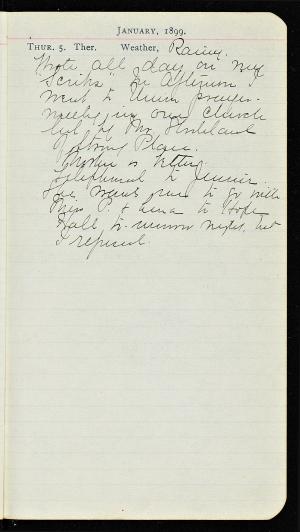 JANUARY, 1899.
THUR. 5. Ther. Weather, Rainy.
Wrote all day on my
"Scribs" In afternoon I
went to Union prayer-
meeting in our church
led by Mr.
Strong Place.
is better.
telephoned to
me to go with
Miss P. + to Hope
Ball to-morrow night, but
I refused.